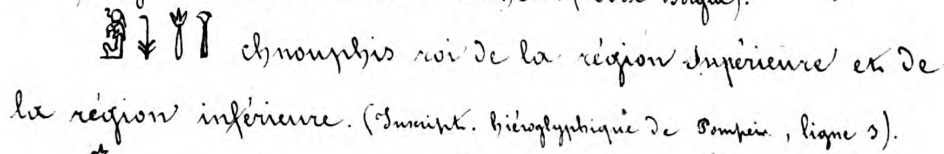 chnouphis roi de la région supérieure et de
la région inférieure. (Inscript. hiéroglyphique de Pompeii, ligne 3).